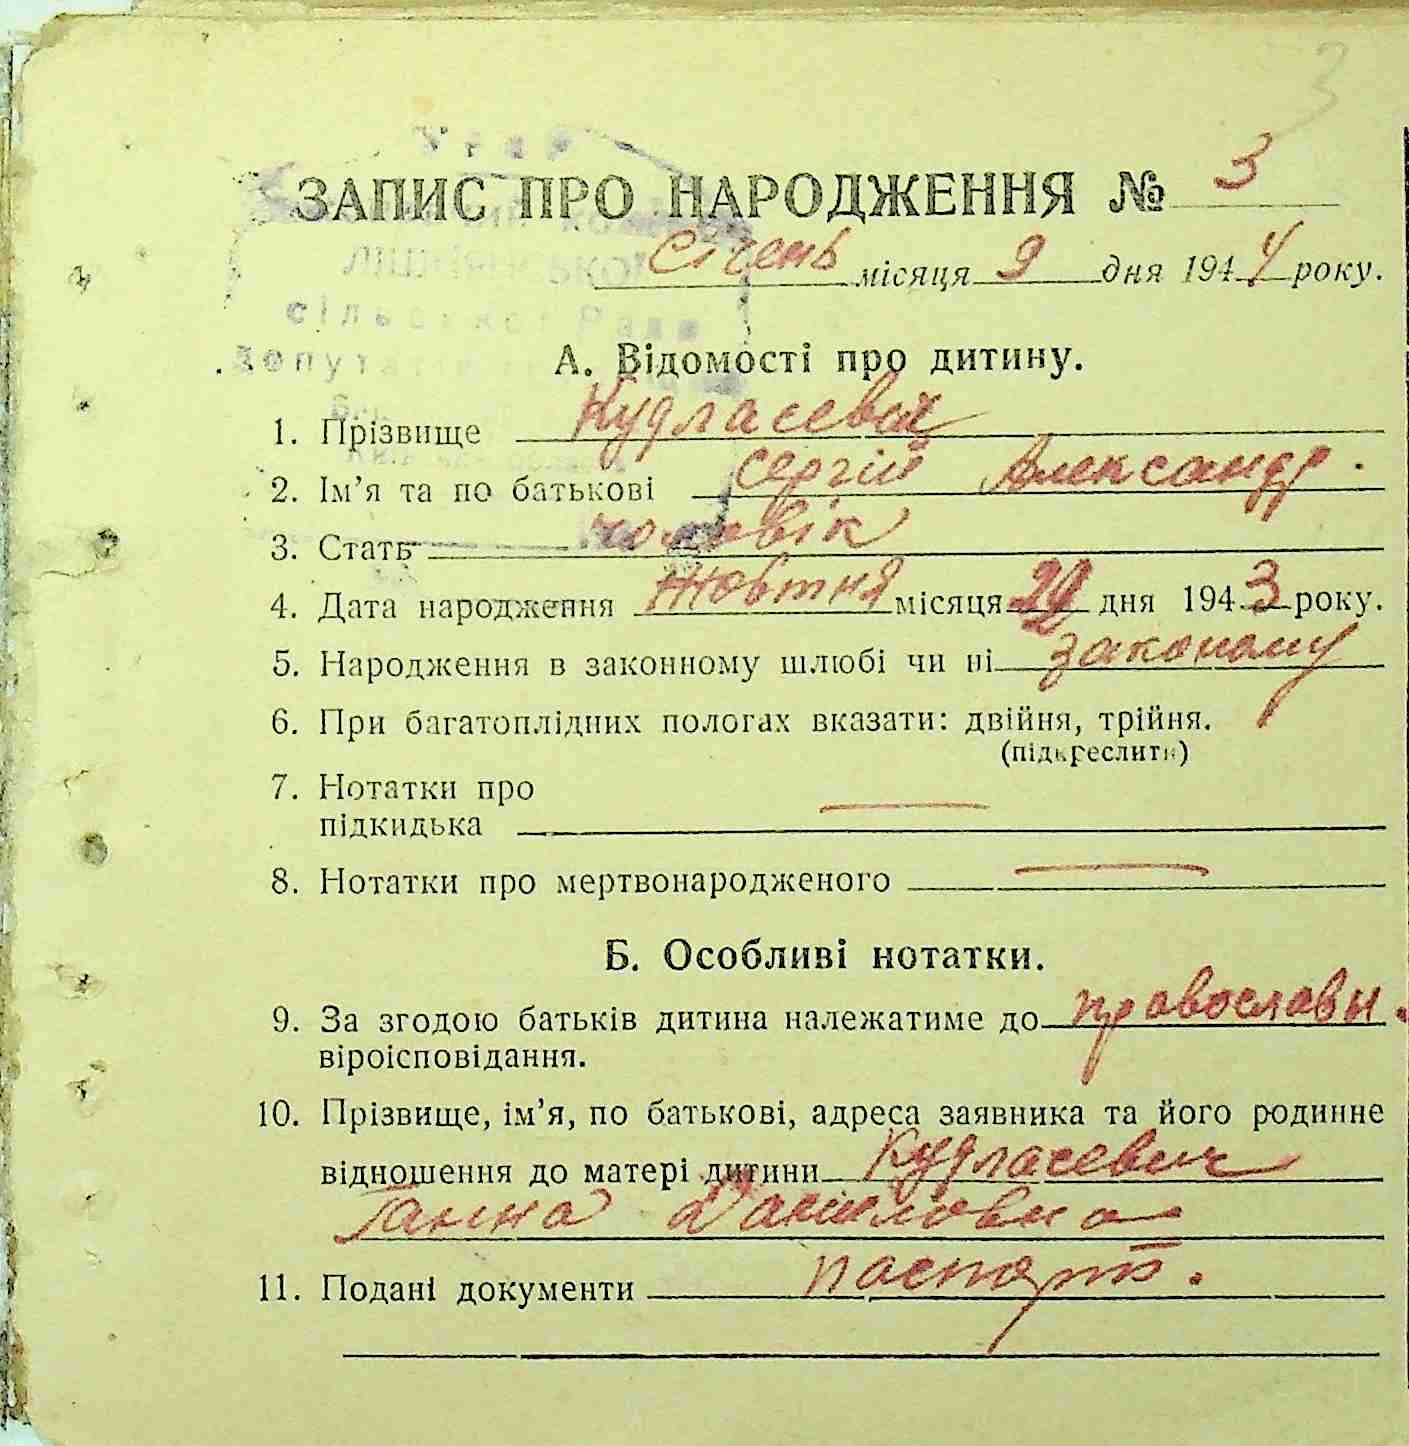 3
ЗАПИС ПРО НАРОДЖЕННЯ № 3
січень місяця 9 дня 1944 року.
сільської Ради
А. Відомості про дитину.
1. Прізвище Кудласевич
2. Ім'я та по батькові Сергій Александр.
3. Стать чоловік
4. Дата народження жовтня місяця 29 дня 1943 року.
5. Народження в законному шлюбі чи ні законому
6. При багатоплідних пологах вказати: двійня, трійня.
(підкреслити)
7. Нотатки про
підкидька —
8. Нотатки про мертвонародженого —
Б. Особливі нотатки.
9. За згодою батьків дитина належатиме до православн.
віроісповідання.
10. Прізвище, ім'я, по батькові, адреса заявника та його родинне
відношення до матері дитини Кудласевич
Ганна Даниловна
11. Подані документи паспорт.